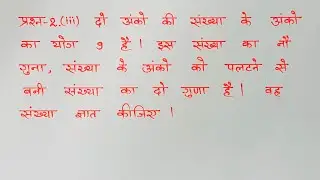 प्रश्न-2.(iii) दो अंको की संख्या के अंको
का योग 9 है। इस संख्या का नौ
गुना, संख्या के अंको को पलटने से
बनी संख्या का दो गुणा है। वह
संख्या ज्ञात कीजिए।